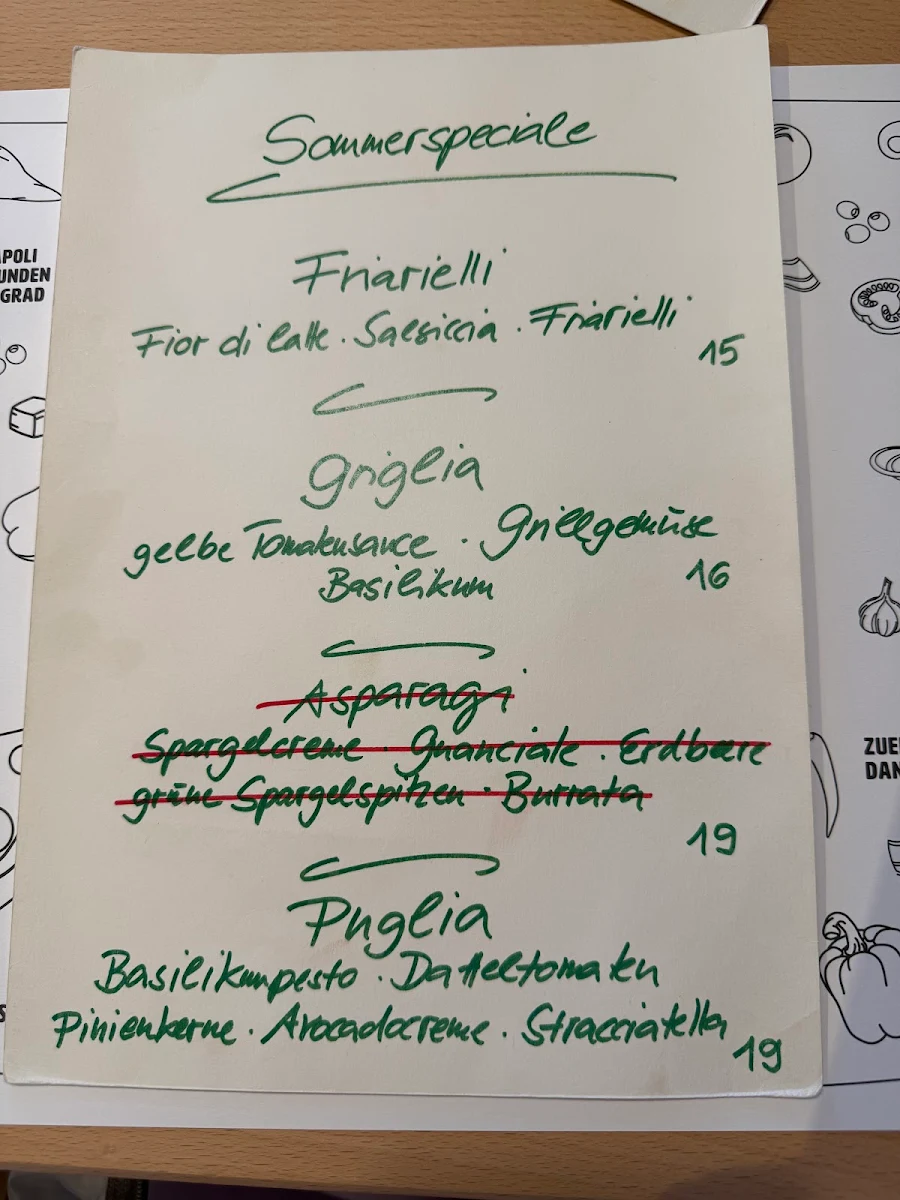 Sommerspeciale
Friarielli
Fior di latte · Salsiccia · Friarielli
15
Griglia
gelbe Tomatensauce · Grillgemüse
Basilikum
16
Asparagi
Spargelcreme · Guanciale · Erdbeere
grüne Spargelspitzen · Burrata
19
Puglia
Basilikumpesto · Datteltomaten
Pinienkerne · Avocadocreme · Stracciatella
19
APOLI
UNDEN
GRAD
ZUE
DAN